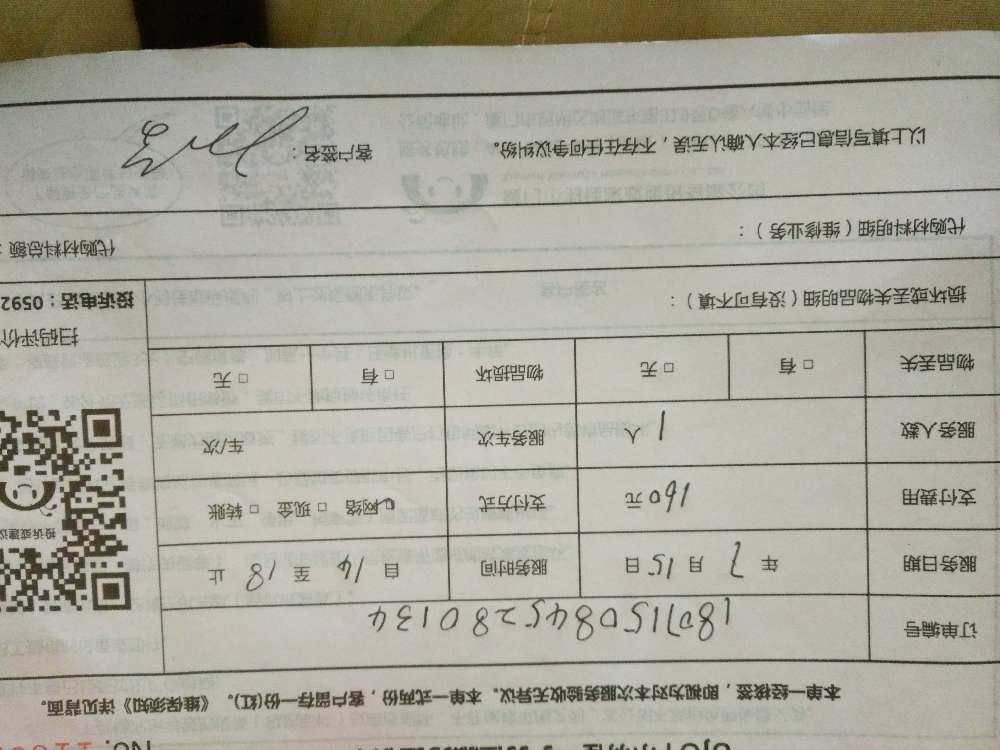 No. 1100
本单一经核签，即视为对本次服务验收无异议。本单一式两份，客户留存一份(红)。《维保须知》详见背面。
订单编号 18071150845280134
服务日期 年 7 月 15 日 服务时间 自 14 至 18 止
支付费用 160 元 支付方式 □网络 □现金 □转账
服务人数 1 人 服务车次 车/次
物品丢失 □有 □无 物品损坏 □有 □无
投诉或建议
扫码评价
投诉电话：0592
损坏或丢失物品明细（没有可不填）：
代购材料明细（维修业务）： 代购材料总额：
以上填写信息已经本人确认无误，不存在任何争议纠纷。 客户签名：